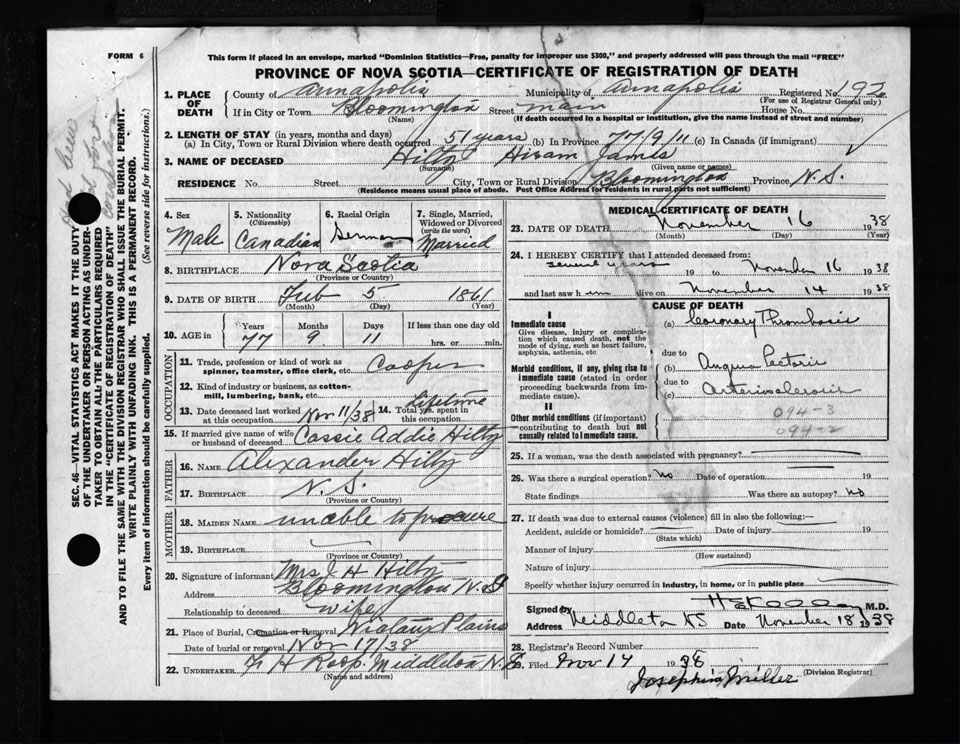 FORM 6
This form if placed in an envelope, marked "Dominion Statistics—Free, penalty for improper use $300," and properly addressed will pass through the mail "FREE"
PROVINCE OF NOVA SCOTIA—CERTIFICATE OF REGISTRATION OF DEATH
SEC. 46—VITAL STATISTICS ACT MAKES IT THE DUTY
OF THE UNDERTAKER OR PERSON ACTING AS UNDER-
TAKER TO OBTAIN ALL THE PARTICULARS REQUIRED
IN THE "CERTIFICATE OF REGISTRATION OF DEATH"
AND TO FILE THE SAME WITH THE DIVISION REGISTRAR WHO SHALL ISSUE THE BURIAL PERMIT.
WRITE PLAINLY WITH UNFADING INK. THIS IS A PERMANENT RECORD.
Every item of information should be carefully supplied. (See reverse side for instructions.)
1. PLACE OF DEATH
County of Annapolis Municipality of Annapolis Registered No. 192
(For use of Registrar General only)
If in City or Town Bloomington Street main House No.
(Name) (If death occurred in a hospital or institution, give the name instead of street and number)
2. LENGTH OF STAY (in years, months and days)
(a) In City, Town or Rural Division where death occurred 51 years (b) In Province 77/9/11 (c) In Canada (if immigrant)
3. NAME OF DECEASED Hiltz Hiram James
(Surname) (Given name or names)
RESIDENCE No. Street City, Town or Rural Division Bloomington Province N.S.
(Residence means usual place of abode. Post Office Address for Residents in rural parts not sufficient)
4. Sex Male
5. Nationality (Citizenship) Canadian
6. Racial Origin German
7. Single, Married, Widowed or Divorced (write the word) Married
8. BIRTHPLACE Nova Scotia
(Province or Country)
9. DATE OF BIRTH Feb 5 1861
(Month) (Day) (Year)
10. AGE in Years Months Days If less than one day old
77 9 11 hrs. or min.
OCCUPATION
11. Trade, profession or kind of work as spinner, teamster, office clerk, etc. Cooper
12. Kind of industry or business, as cotton-mill, lumbering, bank, etc.
13. Date deceased last worked at this occupation Nov 11/38
14. Total yrs. spent in this occupation Lifetime
15. If married give name of wife or husband of deceased Cassie Addie Hiltz
FATHER
16. NAME Alexander Hiltz
17. BIRTHPLACE N.S.
(Province or Country)
MOTHER
18. MAIDEN NAME unable to procure
19. BIRTHPLACE
(Province or Country)
20. Signature of informant Mrs J H Hiltz
Address Bloomington N.S
Relationship to deceased wife
21. Place of Burial, Cremation or Removal Nictaux Plains
Date of burial or removal Nov 17/38
22. UNDERTAKER H Roop Middleton N.S
(Name and address)
MEDICAL CERTIFICATE OF DEATH
23. DATE OF DEATH November 16 38
(Month) (Day) (Year)
24. I HEREBY CERTIFY that I attended deceased from:
several years 19 to November 16 1938
and last saw him alive on November 14 1938
CAUSE OF DEATH
I
Immediate cause
Give disease, injury or complication which caused death, not the mode of dying, such as heart failure, asphyxia, asthenia, etc
(a) Coronary Thrombosis
due to
Morbid conditions, if any, giving rise to immediate cause (stated in order proceeding backwards from immediate cause).
(b) Angina Pectoris
due to
(c) Arteriosclerosis
II
Other morbid conditions (if important) contributing to death but not causally related to immediate cause.
094-3
094-2
25. If a woman, was the death associated with pregnancy?
26. Was there a surgical operation? No Date of operation 19
State findings Was there an autopsy? No
27. If death was due to external causes (violence) fill in also the following:—
Accident, suicide or homicide? Date of injury 19
(State which)
Manner of injury
(How sustained)
Nature of injury
Specify whether injury occurred in industry, in home, or in public place
Signed by M.D.
Address Middleton NS Date November 18 1938
28. Registrar's Record Number
29. Filed Nov 17 1938
Josephine Miller
(Division Registrar)